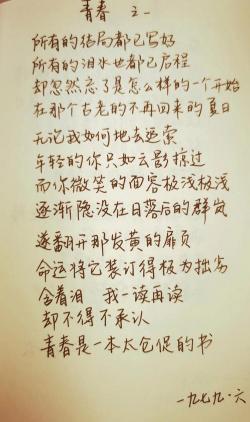 青春 之一
所有的结局都已写好
所有的泪水也都已启程
却忽然忘了是怎么样的一个开始
在那个古老的不再回来的夏日
无论我如何地去追索
年轻的你只如云影掠过
而你微笑的面容极浅极浅
逐渐隐没在日落后的群岚
遂翻开那发黄的扉页
命运将它装订得极为拙劣
含着泪 我一读再读
却不得不承认
青春是一本太仓促的书
一九七九·六